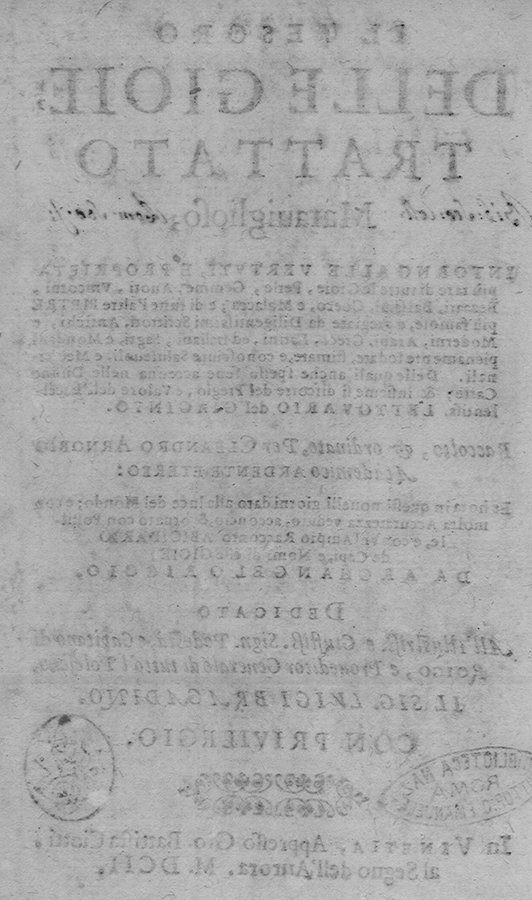 IL TESORO
DELLE GIOIE;
TRATTATO
Marauiglioso,
INTORNO ALLE VERTVTI, E PROPRIETA
più rare di tutte le Gioie, Perle, Gemme, Auori, Vnicorni,
Bezaari, Balsami, Cocco, e Malacca; e di tutte l'altre PIETRE
più famose, e pregiate da Diligentissimi Scrittori, Antichi, e
Moderni, Arabi, Greci, Latini, ed Italiani, Sagri, e Mondani
pienamente lodate, stimate, e conosciute Salutevoli, e Medici-
nali. Delle quali anche spesso sene accenna nelle Diuine
Carte; & insieme si discorre del Pregio, e Valore dell'Eccel-
lentiss. LETTOVARIO del GIACINTO.
Raccolto, & ordinato, Per CLEANDRO ARNOBIO
Academico ARDENTE ETEREO:
Et hora in questi nouelli giorni dato alla luce del Mondo; e con
molta Accuratezza veduto, acconcio, & ornato con Postil-
le, e con vn'ampio Racconto ABICIDARIO
de Capi, e Nomi di esse GIOIE
DA ARCANGELO RICCIO.
DEDICATO
All'Illustriss. e Giustiss. Sign. Podestà, e Capitano di
ROIGO, e Proueditor Generale di tutto 'l Polesine,
IL SIG. LVIGI BRAGADINO.
CON PRIVILEGIO.
BIBLIOTECA NAZ
ROMA
VITTORIO EMANUELE
In VENETIA, Appresso Gio. Battista Ciotti,
al Segno dell'Aurora. M. DCII.